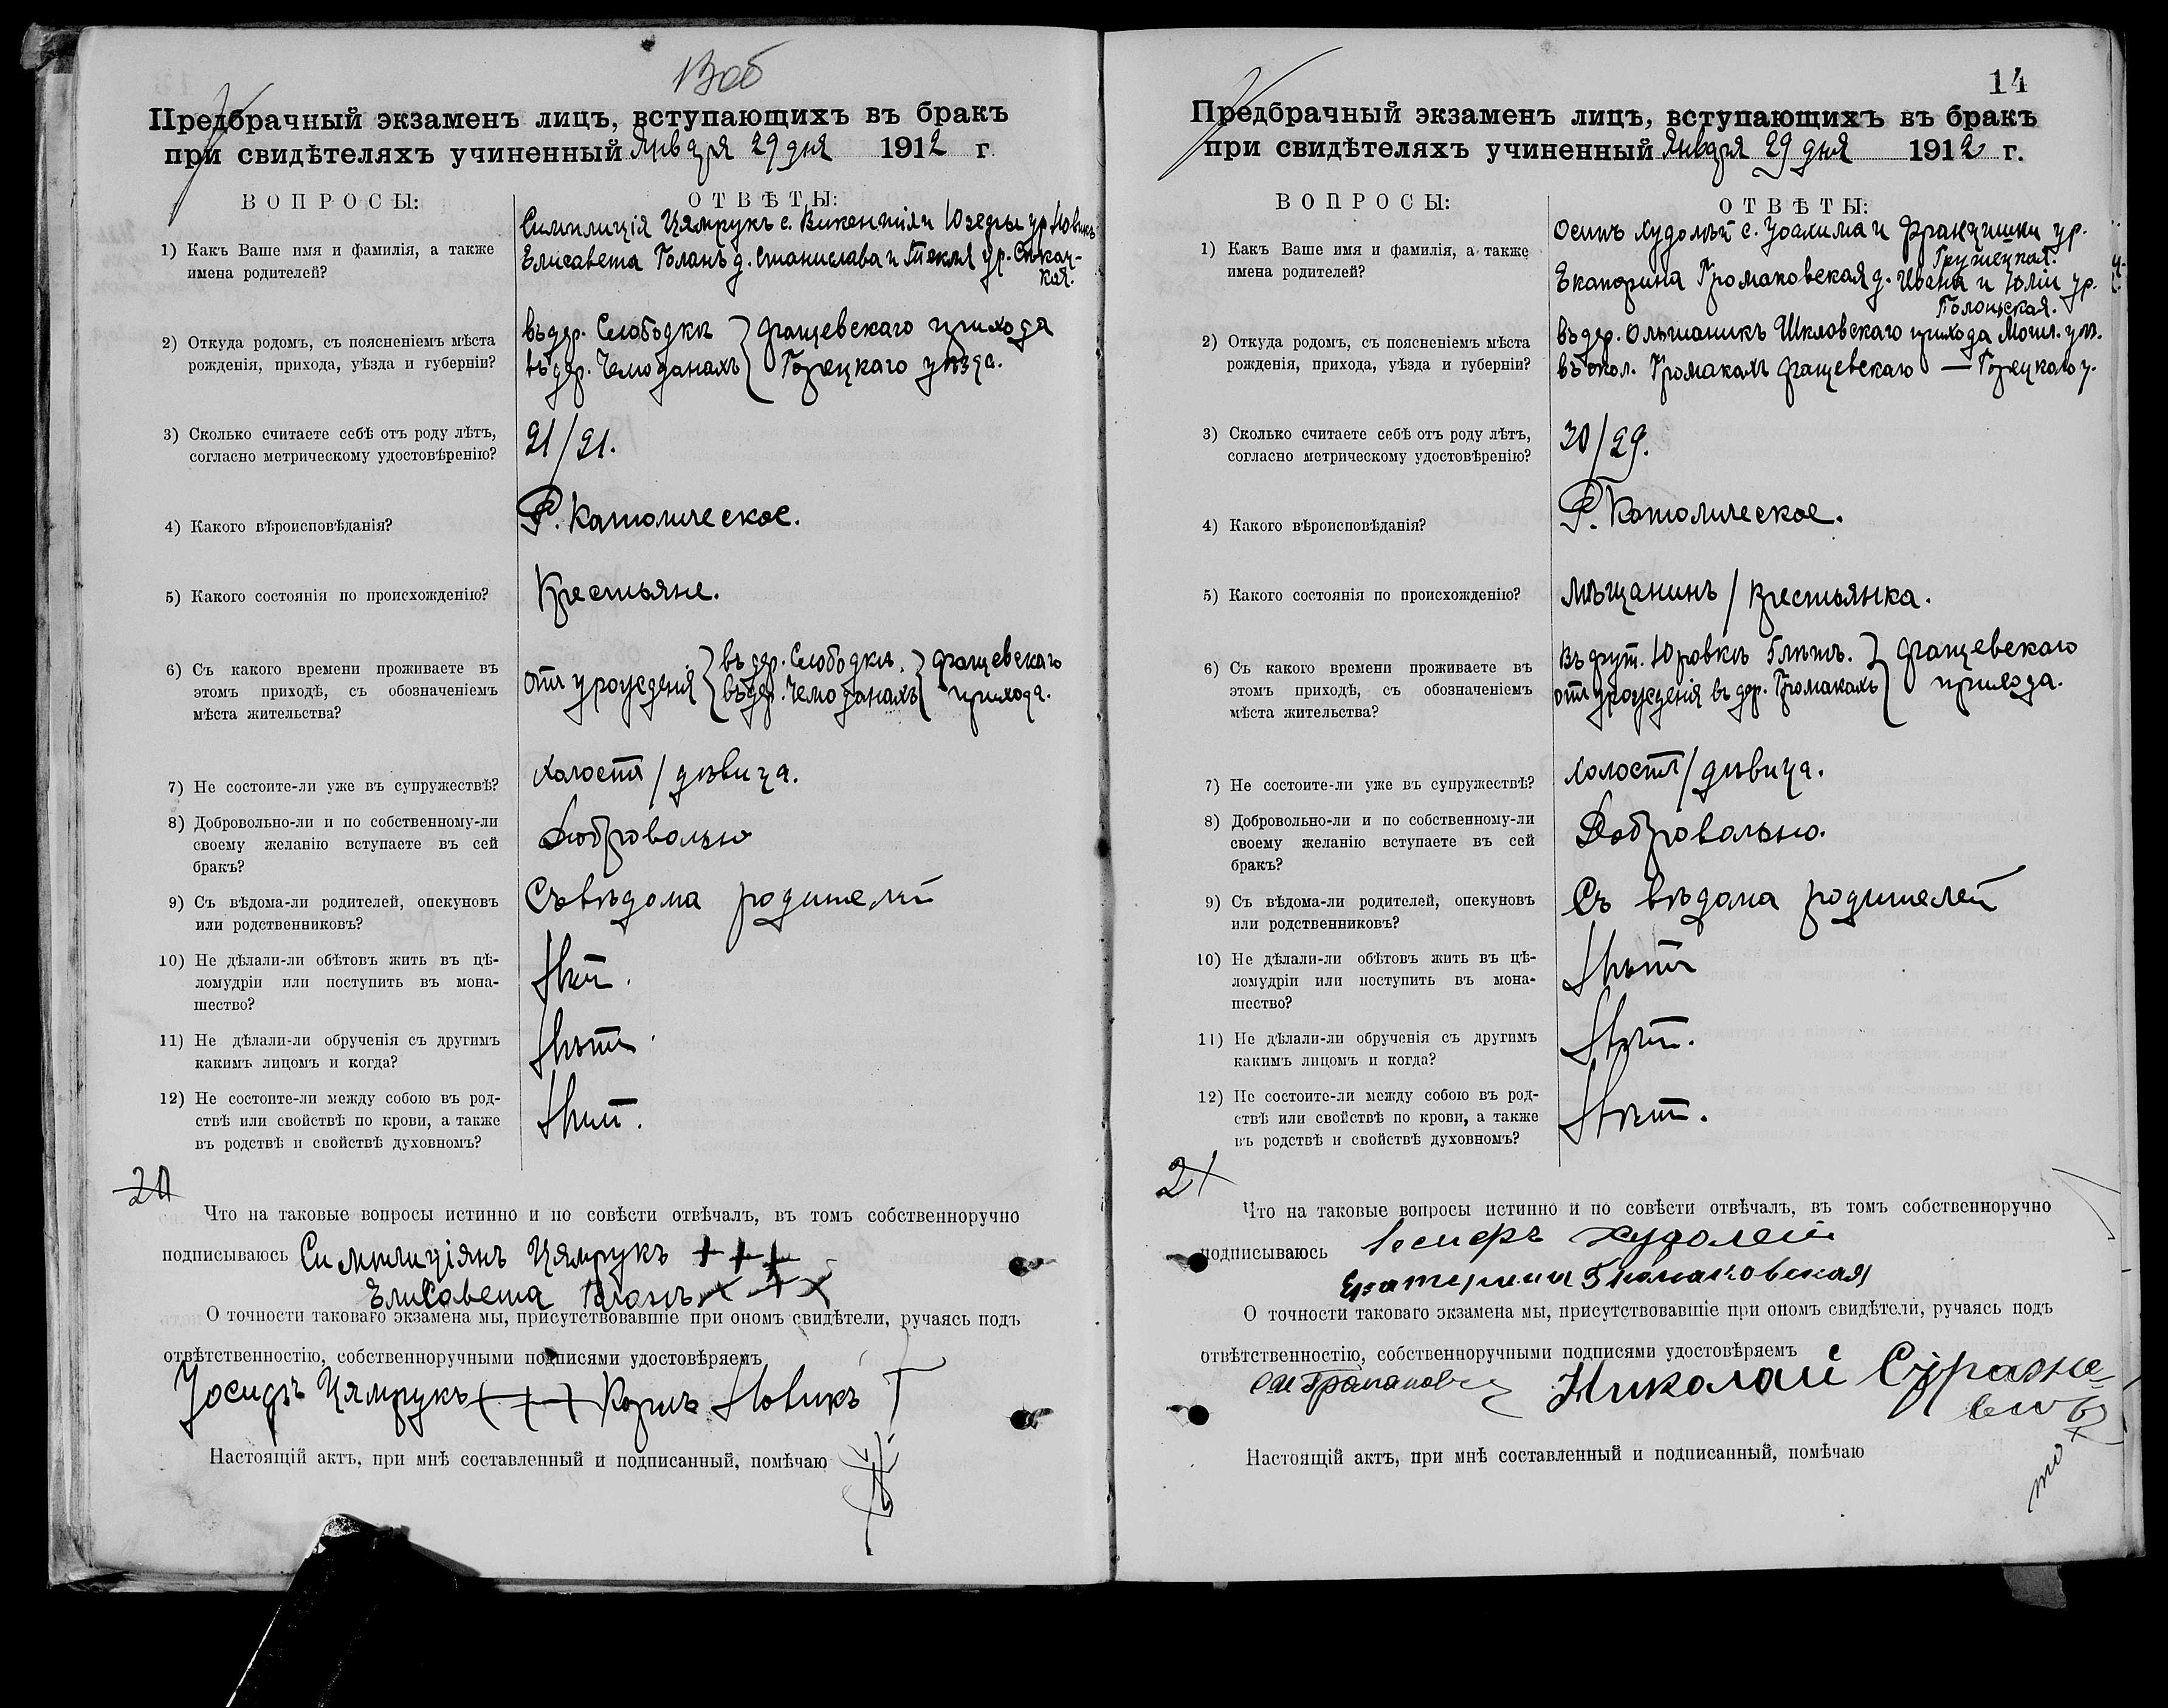 Предбрачный экзаменъ лицъ, вступающихъ въ бракъ
при свидѣтеляхъ учиненный Января 29 дня 1912 г.
ВОПРОСЫ:
ОТВѢТЫ:
1) Какъ Ваше имя и фамилія, а также
имена родителей?
Симплиція Цямрукъ с. Викентія и Юзефы ур. Новикъ
Елисавета Голанъ д. Станислава и Текля ур.
2) Откуда родомъ, съ поясненіемъ мѣста
рожденія, прихода, уѣзда и губерніи?
въ дер. Слободкѣ } Фащевскаго прихода
въ дер. Чемоданахъ } Горецкаго уѣзда.
3) Сколько считаете себѣ отъ роду лѣтъ,
согласно метрическому удостовѣренію?
21/21.
4) Какого вѣроисповѣданія?
Р. Католическое.
5) Какого состоянія по происхожденію?
Крестьяне.
6) Съ какого времени проживаете въ
этомъ приходѣ, съ обозначеніемъ
мѣста жительства?
отъ урожденія { въ дер. Слободкѣ, } Фащевскаго
въ дер. Чемоданахъ } прихода.
7) Не состоите-ли уже въ супружествѣ?
холостъ / дѣвица.
8) Добровольно-ли и по собственному-ли
своему желанію вступаете въ сей
бракъ?
Добровольно
9) Съ вѣдома-ли родителей, опекуновъ
или родственниковъ?
Съ вѣдома родителей
10) Не дѣлали-ли обѣтовъ жить въ цѣ-
ломудріи или поступить въ мона-
шество?
Нѣтъ.
11) Не дѣлали-ли обрученія съ другимъ
какимъ лицомъ и когда?
Нѣтъ.
12) Не состоите-ли между собою въ род-
ствѣ или свойствѣ по крови, а также
въ родствѣ и свойствѣ духовномъ?
Нѣтъ.
Что на таковые вопросы истинно и по совѣсти отвѣчалъ, въ томъ собственноручно
подписываюсь Симплиціянъ Цямрукъ + + +
Елисавета Голанъ × + ×
О точности таковаго экзамена мы, присутствовавшіе при ономъ свидѣтели, ручаясь подъ
отвѣтственностію, собственноручными подписями удостовѣряемъ
Іосифъ Цямрукъ + + + Новикъ
Настоящій актъ, при мнѣ составленный и подписанный, помѣчаю
14
Предбрачный экзаменъ лицъ, вступающихъ въ бракъ
при свидѣтеляхъ учиненный Января 29 дня 1912 г.
ВОПРОСЫ:
ОТВѢТЫ:
1) Какъ Ваше имя и фамилія, а также
имена родителей?
Осипъ Худолѣй с. Іоахима и Францишки ур.
Гружецкая.
Екатерина Громаковская д. Ивана и Юліи ур.
Голоньская.
2) Откуда родомъ, съ поясненіемъ мѣста
рожденія, прихода, уѣзда и губерніи?
въ дер. Ольшаникъ Шкловскаго прихода Могил. уѣз.
въ окол. Громакахъ Фащевскаго — Горецкаго у.
3) Сколько считаете себѣ отъ роду лѣтъ,
согласно метрическому удостовѣренію?
30/29.
4) Какого вѣроисповѣданія?
Р. Католическое.
5) Какого состоянія по происхожденію?
Мѣщанинъ / Крестьянка.
6) Съ какого времени проживаете въ
этомъ приходѣ, съ обозначеніемъ
мѣста жительства?
въ фут. Юровкѣ 5 лѣтъ. } Фащевскаго
отъ урожденія въ дер. Громакахъ } прихода.
7) Не состоите-ли уже въ супружествѣ?
Холостъ / дѣвица.
8) Добровольно-ли и по собственному-ли
своему желанію вступаете въ сей
бракъ?
Добровольно.
9) Съ вѣдома-ли родителей, опекуновъ
или родственниковъ?
Съ вѣдома родителей
10) Не дѣлали-ли обѣтовъ жить въ цѣ-
ломудріи или поступить въ мона-
шество?
Нѣтъ
11) Не дѣлали-ли обрученія съ другимъ
какимъ лицомъ и когда?
Нѣтъ.
12) Не состоите-ли между собою въ род-
ствѣ или свойствѣ по крови, а также
въ родствѣ и свойствѣ духовномъ?
Нѣтъ.
Что на таковые вопросы истинно и по совѣсти отвѣчалъ, въ томъ собственноручно
подписываюсь Іосифъ Худолей
Екатерина Громаковская
О точности таковаго экзамена мы, присутствовавшіе при ономъ свидѣтели, ручаясь подъ
отвѣтственностію, собственноручными подписями удостовѣряемъ
Николай
Настоящій актъ, при мнѣ составленный и подписанный, помѣчаю